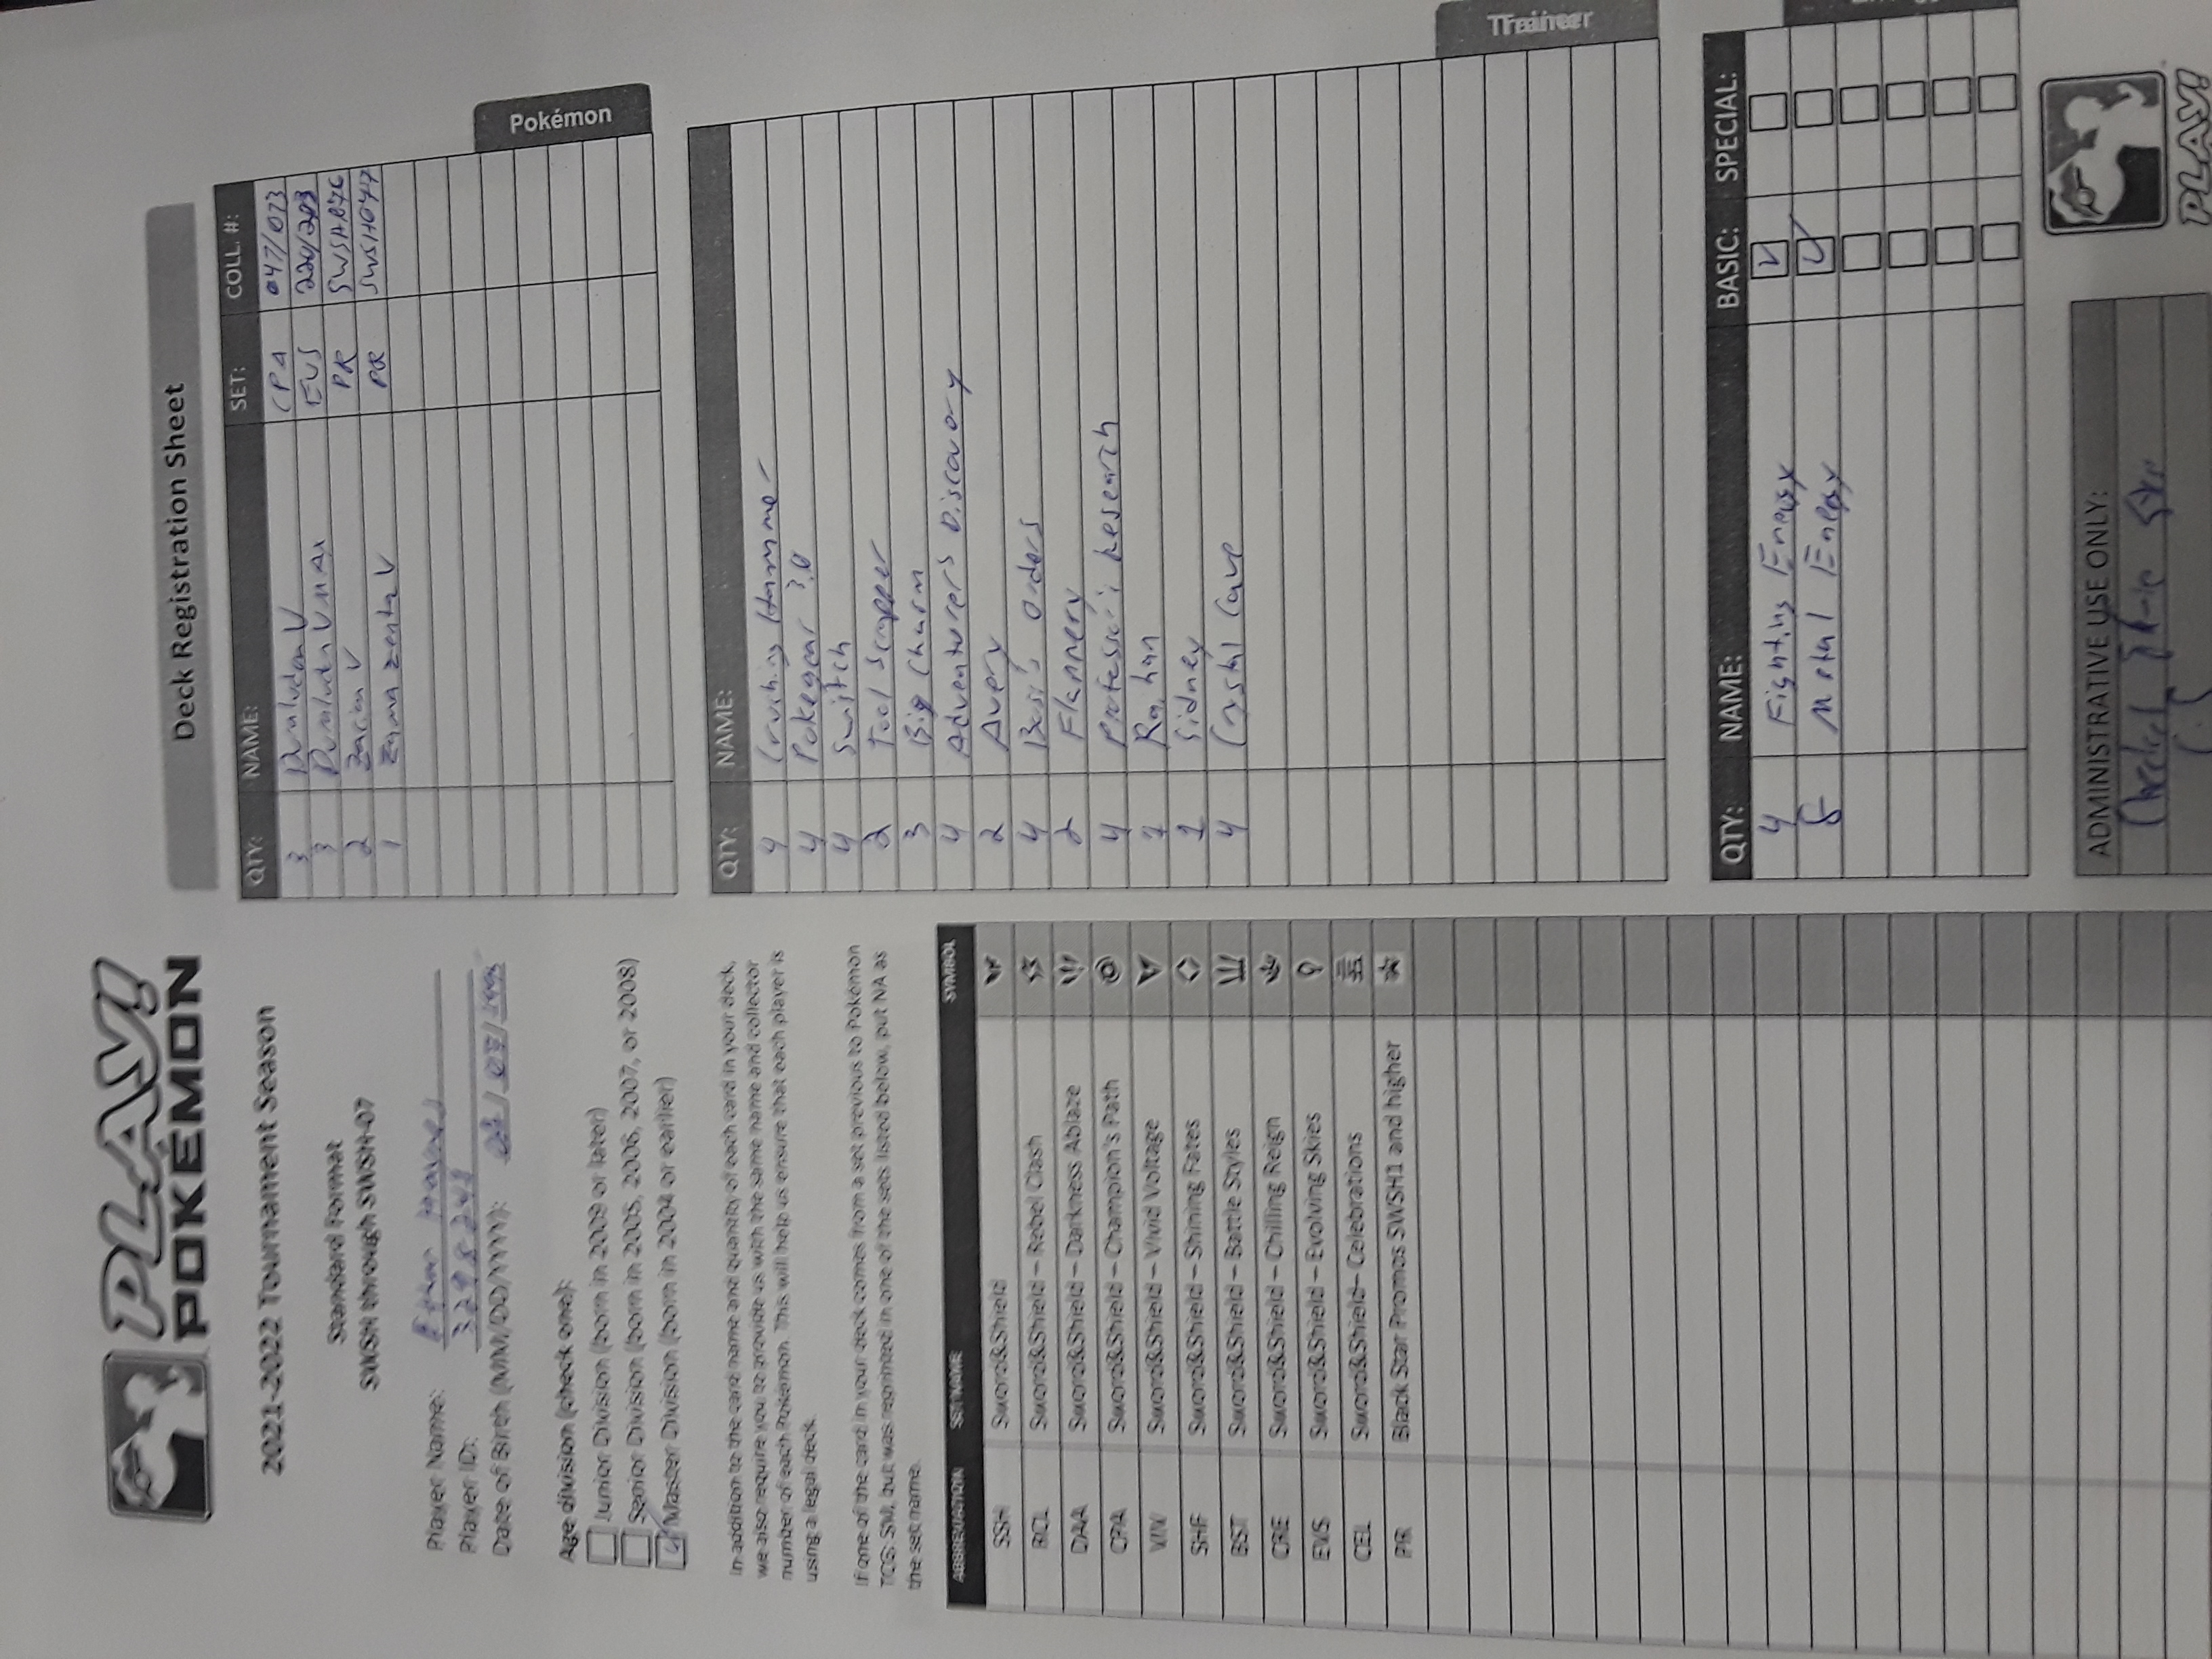 PLAY!
POKÉMON
2021-2022 Tournament Season
Standard Format
SWSH through SWSH-07
Player Name: Ethan
Player ID: 3298248
Date of Birth (MM/DD/YYYY): / 07 /
Age division (check one):
Junior Division (born in 2009 or later)
Senior Division (born in 2005, 2006, 2007, or 2008)
Master Division (born in 2004 or earlier)
In addition to the card name and quantity of each card in your deck,
we also require you to provide us with the same name and collector
number of each Pokémon. This will help us ensure that each player is
using a legal deck.
If one of the card in your deck comes from a set previous to Pokémon
TCG: SM, but was reprinted in one of the sets listed below, put NA as
the set name.
ABBREVIATION SET NAME SYMBOL
SSH Sword&Shield
RCL Sword&Shield – Rebel Clash
DAA Sword&Shield – Darkness Ablaze
CPA Sword&Shield – Champion's Path
VIV Sword&Shield – Vivid Voltage
SHF Sword&Shield – Shining Fates
BST Sword&Shield – Battle Styles
CRE Sword&Shield – Chilling Reign
EVS Sword&Shield – Evolving Skies
CEL Sword&Shield– Celebrations
PR Black Star Promos SWSH1 and higher
Deck Registration Sheet
QTY: NAME: SET: COLL. #:
3 Duraludon V CPA 047/073
3 Duraludon VMAX EVS 220/203
2 Zacian V PR
1 Zamazenta V PR SWSH077
Pokémon
QTY: NAME:
4 Crushing Hammer
4 Pokegear 3.0
4 Switch
2 Tool Scrapper
3 Big Charm
4 Adventurer's Discovery
2 Avery
4 Boss's Orders
2 Flannery
4 Professor's Research
1 Raihan
1 Sidney
4 Crystal Cave
Trainer
QTY: NAME: BASIC: SPECIAL:
4 Fighting Energy
8 Metal Energy
ADMINISTRATIVE USE ONLY:
Checked
PLAY!